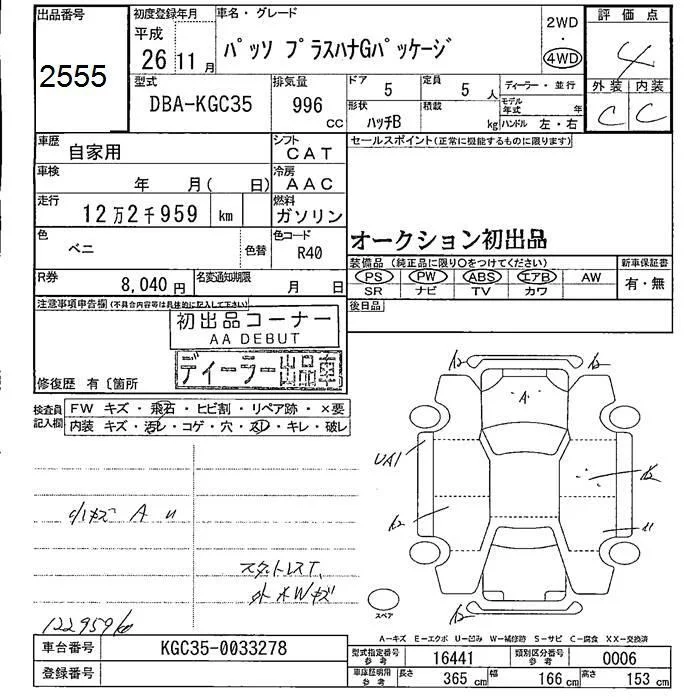 出品番号
2555
初度登録年月
平成
26 11 月
車名・グレード
パッソ プラスハナGパッケージ
2WD
・
4WD
評価点
4
外装 内装
C C
型式
DBA-KGC35
排気量
996
CC
ドア
5
定員
5 人
ディーラー・並行
形状
ハッチB
積載
kg
モデル年式 年
ハンドル 左・右
車歴
自家用
シフト
CAT
セールスポイント(正常に機能するものに限ります)
車検
年 月( 日)
冷房
AAC
走行
12万2千959 km
燃料
ガソリン
色
ベニ
色替
色コード
R40
オークション初出品
装備品(純正品に限り○をつけてください)
新車保証書
PS PW ABS エアB AW
SR ナビ TV カワ
有・無
R券
8,040円
名変通知期限
月 日
後日品
注意事項申告欄(不具合内容等は具体的に記入して下さい)
初出品コーナー
AA DEBUT
ディーラー出品車
修復歴 有〔箇所
検査員記入欄
FW キズ・飛石・ヒビ割・リペア跡・×要
内装 キズ・汚レ・コゲ・穴・スレ・キレ・破レ
小キズ A U
スタットレスT.
外 水Wキズ
122959km
A
UA1
スペア
A-キズ E-エクボ U-凹み W-補修跡 S-サビ C-腐食 XX-交換済
車台番号
KGC35-0033278
登録番号
型式指定番号
参考
16441
類別区分番号
参考
0006
車庫証明用
参考
長さ
365 cm
幅
166 cm
高さ
153 cm